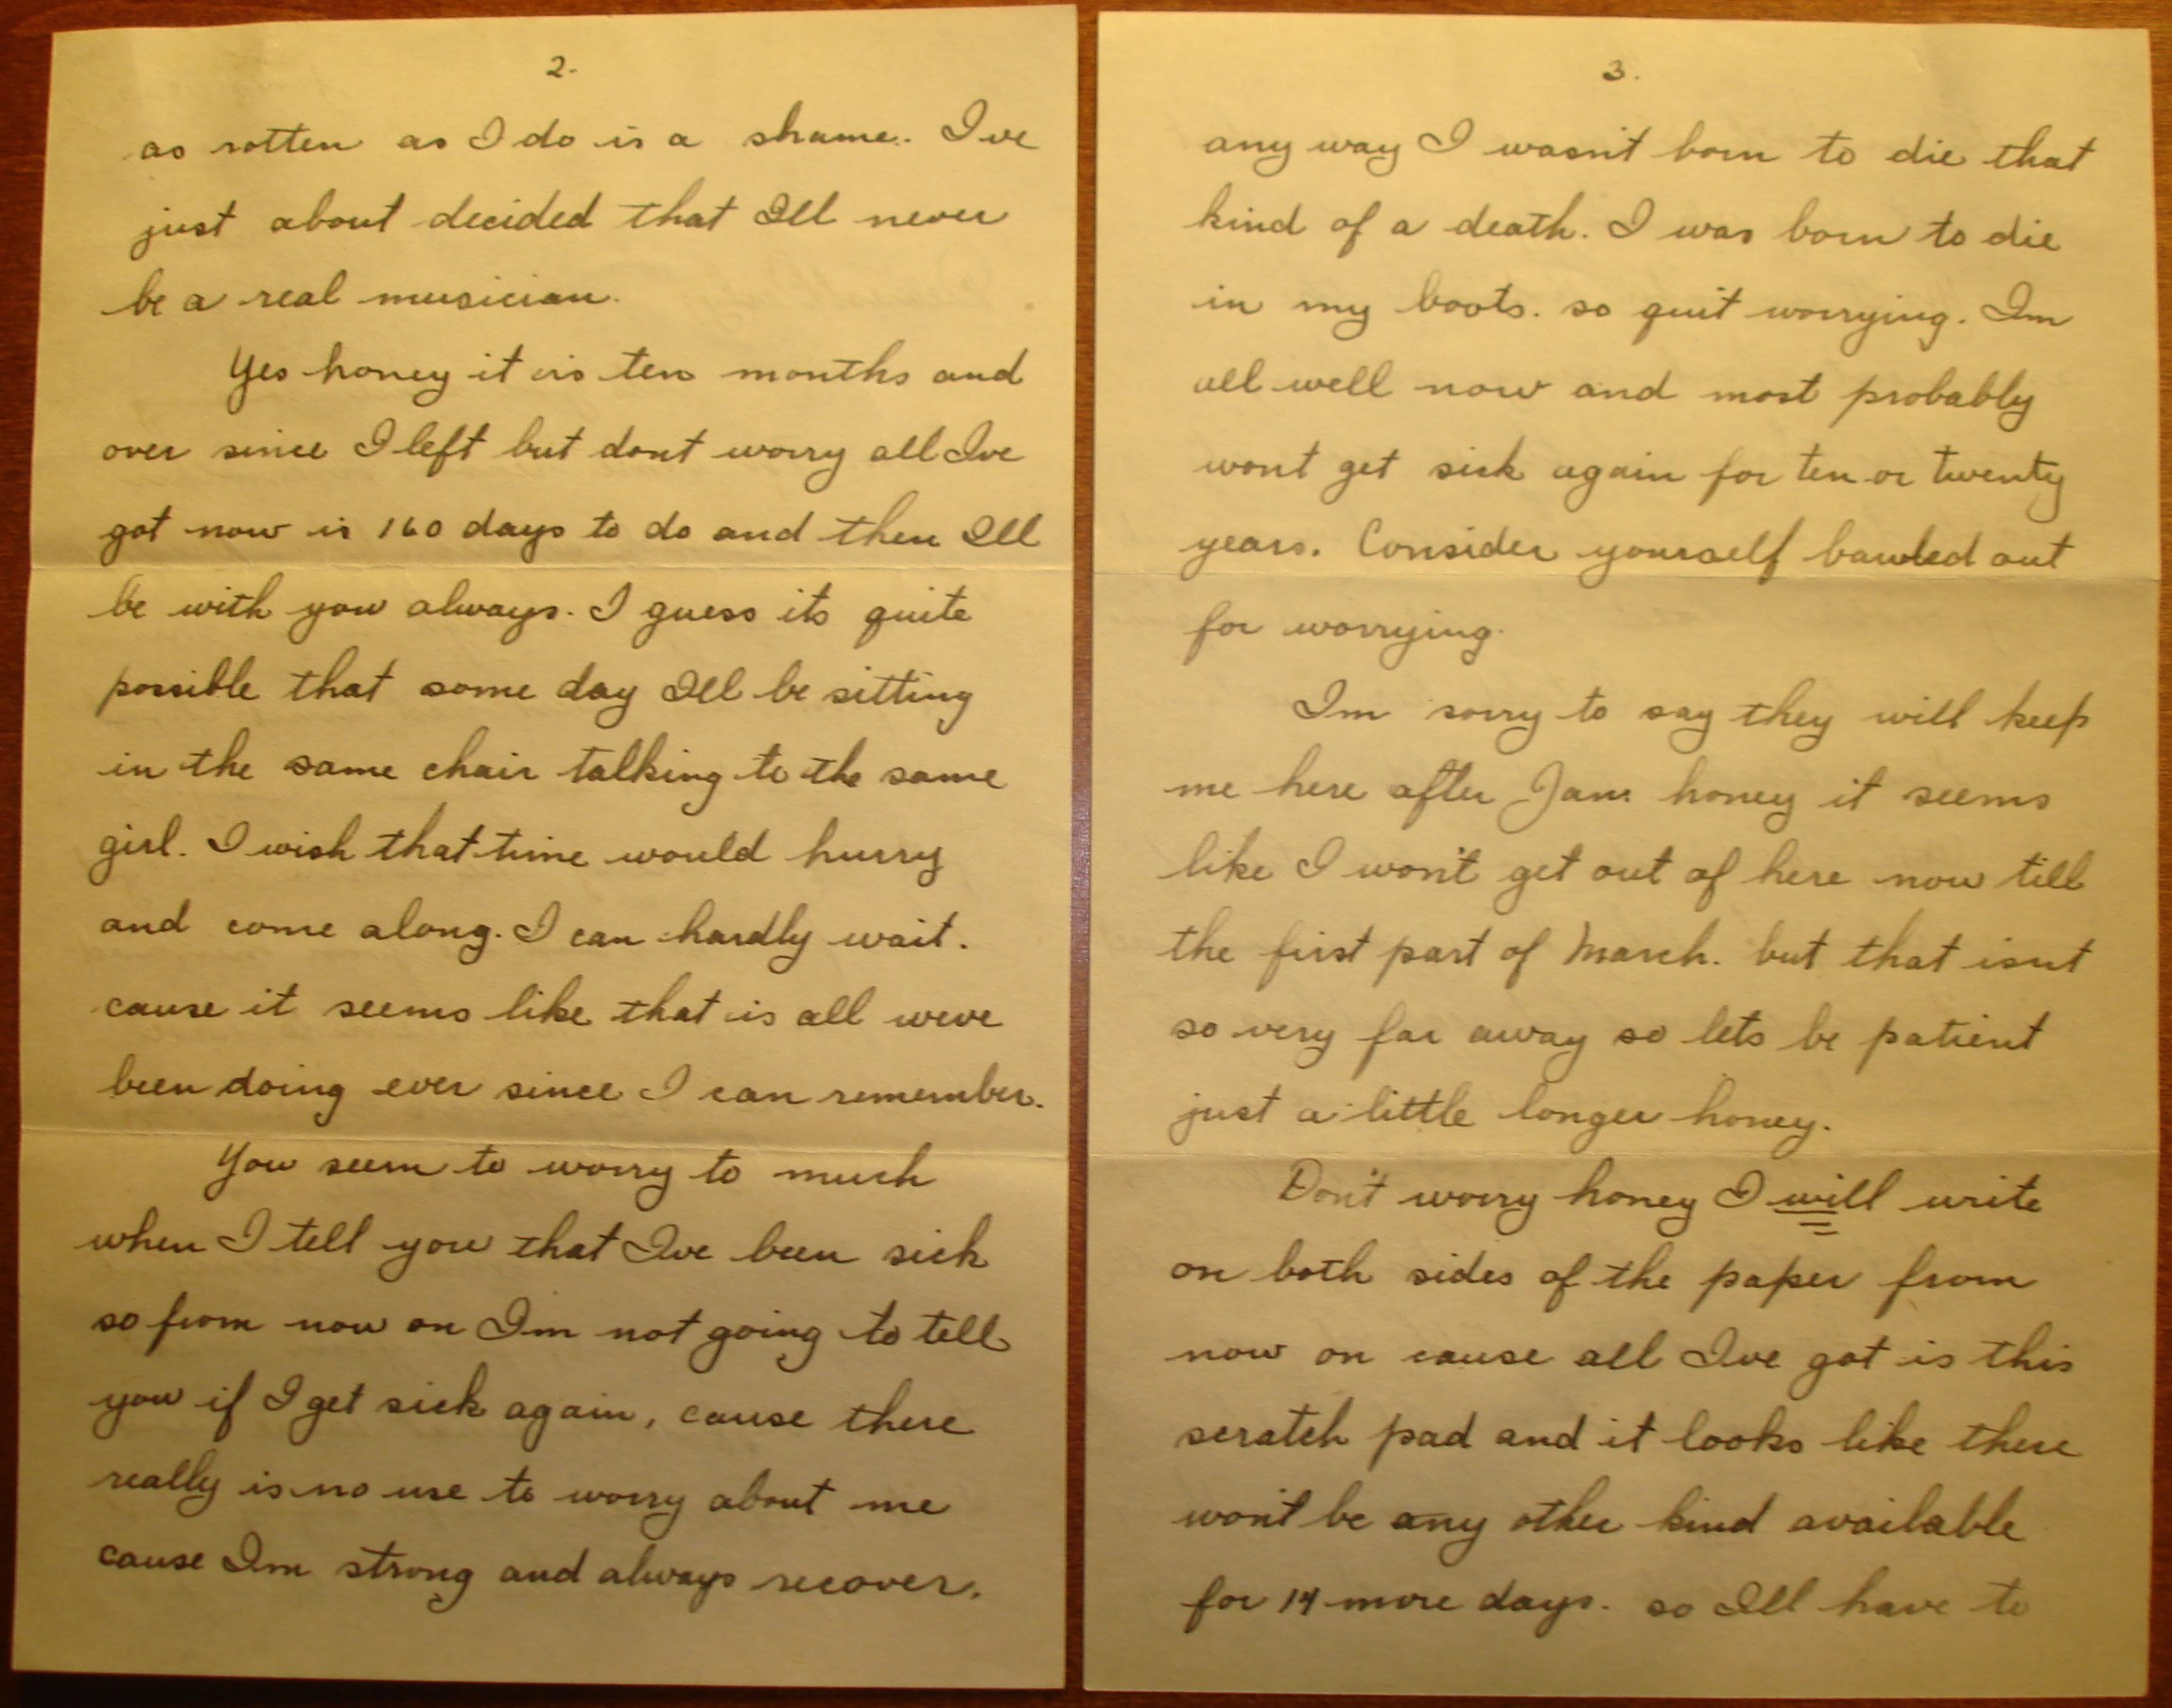 2.
as rotten as I do is a shame. Ive
just about decided that Ill never
be a real musician.
Yes honey it is ten months and
over since I left but dont worry all Ive
got now is 160 days to do and then Ill
be with you always. I guess its quite
possible that some day Ill be sitting
in the same chair talking to the same
girl. I wish that time would hurry
and come along. I can hardly wait.
cause it seems like that is all weve
been doing ever since I can remember.
You seem to worry to much
when I tell you that Ive been sick
so from now on Im not going to tell
you if I get sick again, cause there
really is no use to worry about me
cause Im strong and always recover.
3.
any way I wasn't born to die that
kind of a death. I was born to die
in my boots. so quit worrying. Im
all well now and most probably
wont get sick again for ten or twenty
years. Consider yourself bawled out
for worrying.
Im sorry to say they will keep
me here after Jan. honey it seems
like I won't get out of here now till
the first part of March. but that isnt
so very far away so lets be patient
just a little longer honey.
Don't worry honey I will write
on both sides of the paper from
now on cause all Ive got is this
scratch pad and it looks like there
won't be any other kind available
for 14 more days. so Ill have to